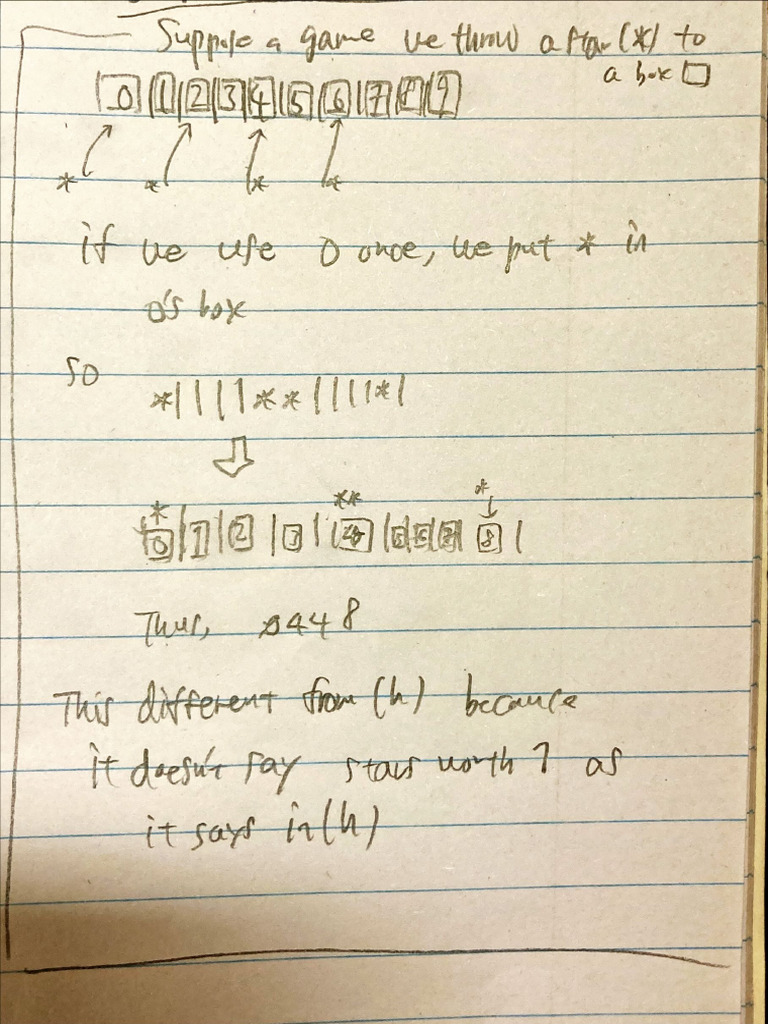 Suppose a game we throw a star(*) to
a box □
|0|1|2|3|4|5|6|7|8|9|
* * * *
if we use 0 once, we put * in
0's box
so
*||||**||||*|
* ** *
|0|1|2|3|4| 8|
Thus, 0448
This different from (h) because
it doesn't say stars worth 1 as
it says in (h)